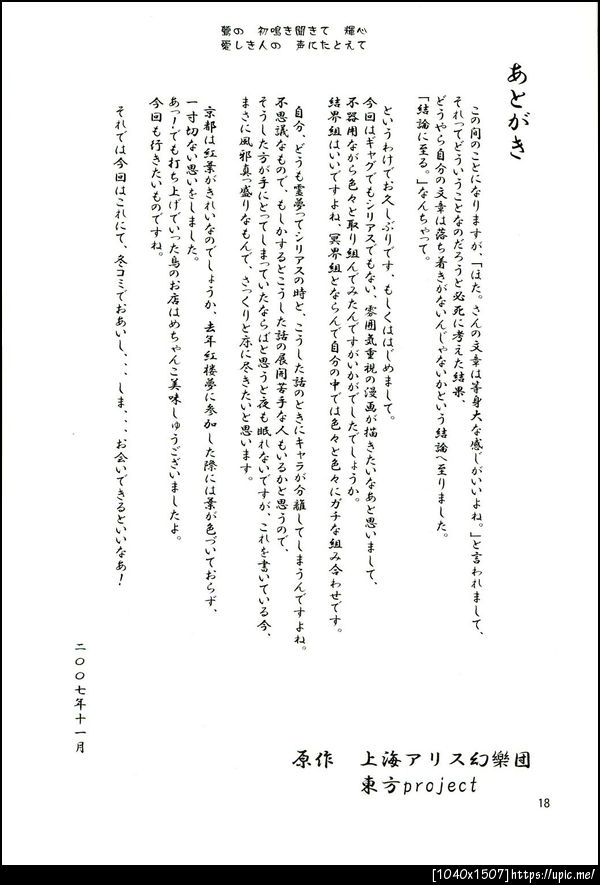 鶯の　初鳴き聞きて　輝心
愛しき人の　声にたとえて
あとがき
この間のことになりますが、「ほた。さんの文章は等身大な感じがいいよね。」と言われまして、
それってどういうことなのだろうと必死に考えた結果、
どうやら自分の文章は落ち着きがないんじゃないかという結論へ至りました。
「結論に至る。」なんちゃって。
というわけでお久しぶりです、もしくははじめまして。
今回はギャグでもシリアスでもない、雰囲気重視の漫画が描きたいなあと思いまして、
不器用ながら色々と取り組んでみたんですがいかがでしたでしょうか。
結界組はいいですよね、冥界組とならんで自分の中では色々と色々にガチな組み合わせです。
自分、どうも霊夢ってシリアスの時と、こうした話のときにキャラが分離してしまうんですよね。
不思議なもので、もしかするとこうした話の展開苦手な人もいるかと思うので、
そうした方が手にとってしまっていたならばと思うと夜も眠れないですが、これを書いている今、
まさに風邪真っ盛りなもんで、さっくりと床に尽きたいと思います。
京都は紅葉がきれいなのでしょうか、去年紅楼夢に参加した際には葉が色づいておらず、
一寸切ない思いをしました。
あっ！でも打ち上げでいった鳥のお店はめちゃんこ美味しゅうございましたよ。
今回も行きたいものですね。
それでは今回はこれにて、冬コミでおあいし、、、しま、、、お会いできるといいなあ！
二〇〇七年十一月
原作　上海アリス幻樂団
東方project
18
[1040x1507]https://upic.me/